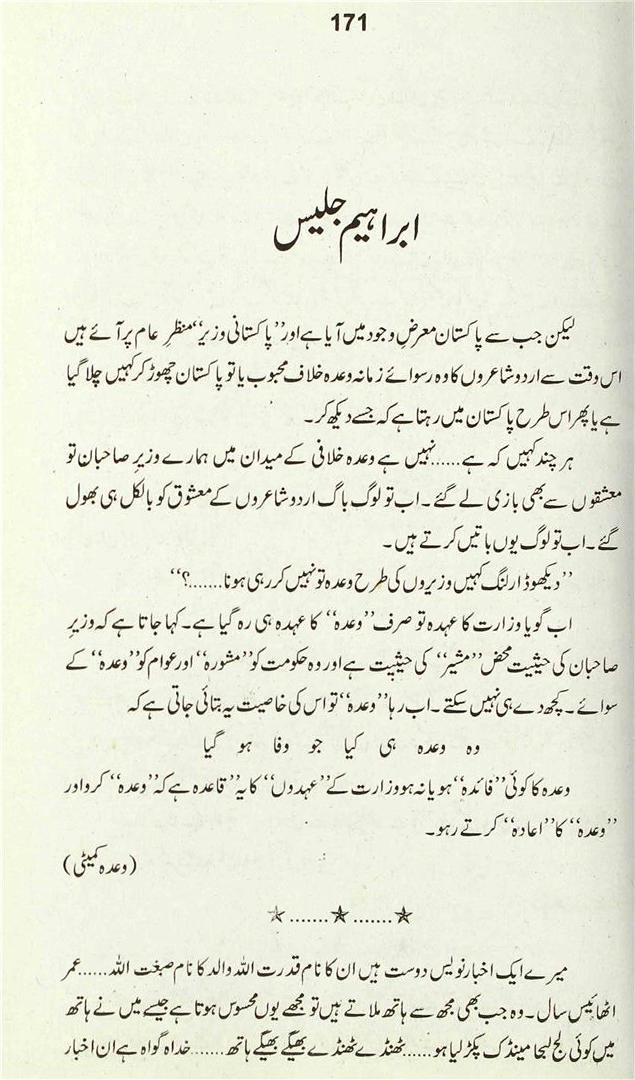 171
ابراہیم جلیس
لیکن جب سے پاکستان معرضِ وجود میں آیا ہے اور ”پاکستانی وزیر“ منظرِ عام پر آئے ہیں
اس وقت سے اردو شاعروں کا وہ رسوائے زمانہ وعدہ خلاف محبوب یا تو پاکستان چھوڑ کر کہیں چلا گیا
ہے یا پھر اس طرح پاکستان میں رہتا ہے کہ جسے دیکھ کر۔
ہر چند کہیں کہ ہے......نہیں ہے وعدہ خلافی کے میدان میں ہمارے وزیر صاحبان تو
معشقوں سے بھی بازی لے گئے۔ اب تو لوگ باگ اردو شاعروں کے معشوق کو بالکل ہی بھول
گئے۔ اب تو لوگ یوں باتیں کرتے ہیں۔
”دیکھو ڈارلنگ کہیں وزیروں کی طرح وعدہ تو نہیں کر رہی ہونا.......؟“
اب گویا وزارت کا عہدہ تو صرف ”وعدہ“ کا عہدہ ہی رہ گیا ہے۔ کہا جاتا ہے کہ وزیرِ
صاحبان کی حیثیت محض ”مشیر“ کی حیثیت ہے اور وہ حکومت کو ”مشورہ“ اور عوام کو ”وعدہ“ کے
سوائے۔ کچھ دے ہی نہیں سکتے۔ اب رہا ”وعدہ“ تو اس کی خاصیت یہ بتائی جاتی ہے کہ
وہ وعدہ ہی کیا جو وفا ہو گیا
وعدہ کا کوئی ”فائدہ“ ہو یا نہ ہو وزارت کے ”عہدوں“ کا یہ ”قاعدہ ہے کہ ”وعدہ“ کرو اور
”وعدہ“ کا ”اعادہ“ کرتے رہو۔
(وعدہ کمیٹی)
☆.......☆.......☆
میرے ایک اخبار نویس دوست ہیں ان کا نام قدرت اللہ والد کا نام صبغت اللہ......عمر
اٹھائیس سال۔ وہ جب بھی مجھ سے ہاتھ ملاتے ہیں تو مجھے یوں محسوس ہوتا ہے جیسے میں نے ہاتھ
میں کوئی لج لجا مینڈک پکڑ لیا ہو......ٹھنڈے ٹھنڈے بھیگے بھیگے ہاتھ.......خدا گواہ ہے ان اخبار